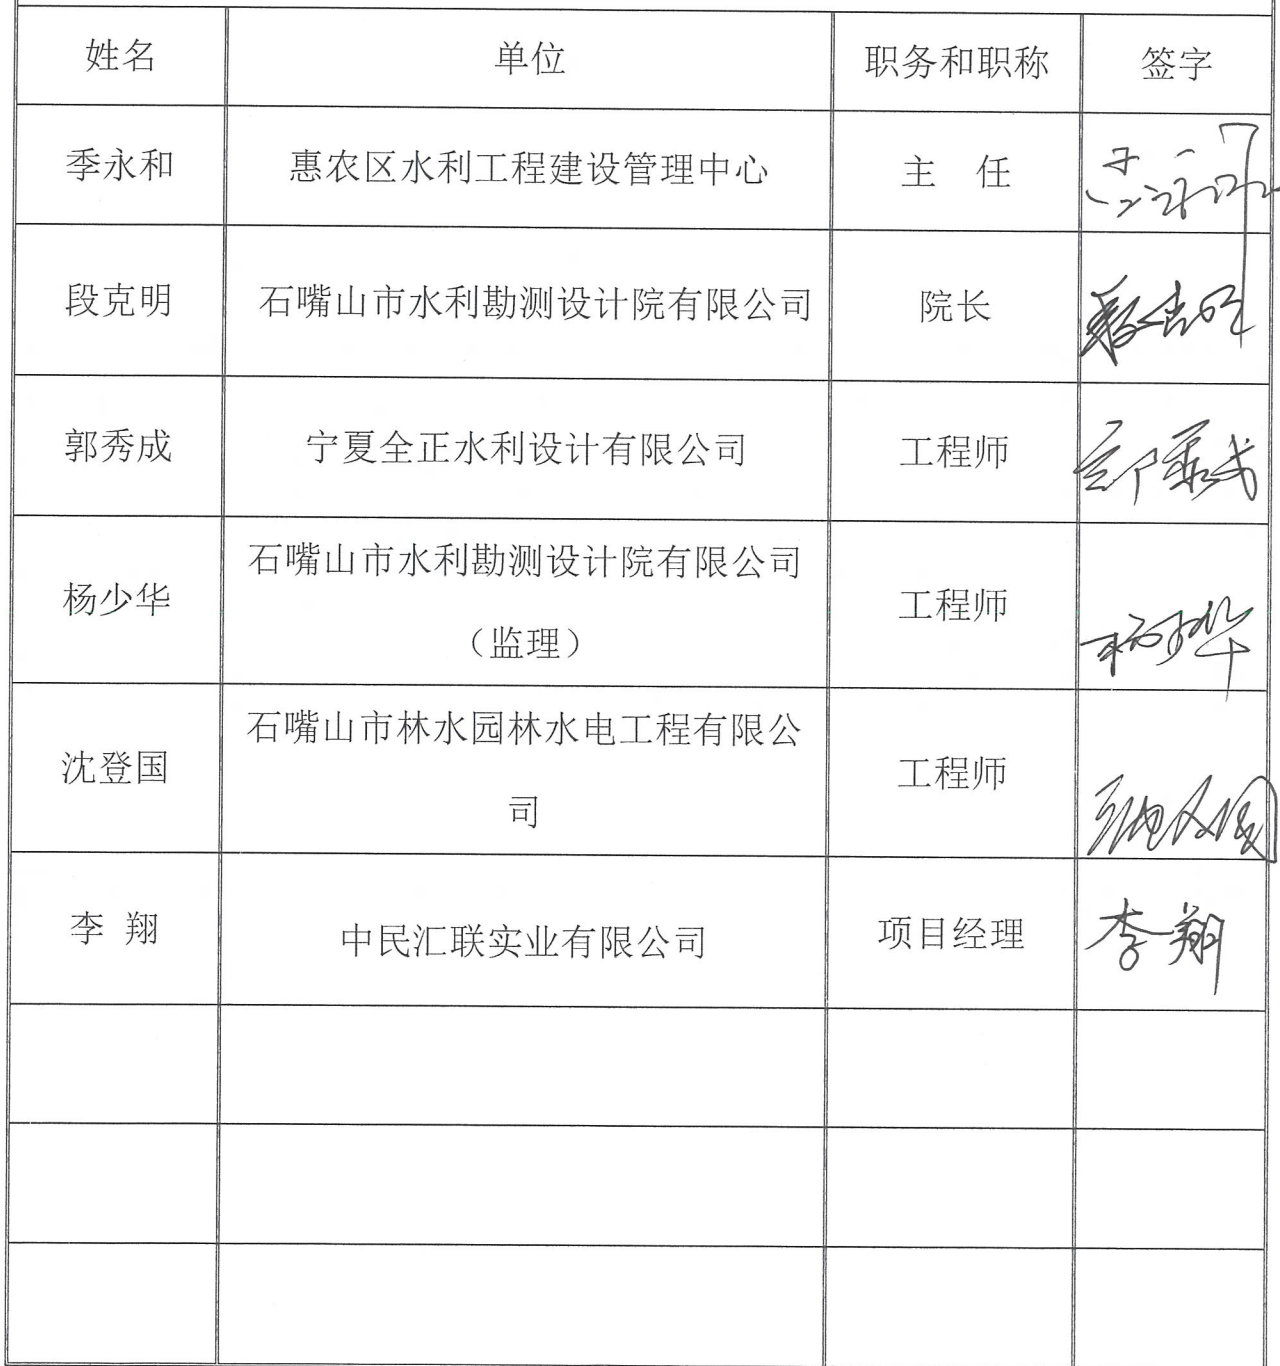 姓名 单位 职务和职称 签字
季永和 惠农区水利工程建设管理中心 主 任
段克明 石嘴山市水利勘测设计院有限公司 院长
郭秀成 宁夏全正水利设计有限公司 工程师 郭秀成
杨少华 石嘴山市水利勘测设计院有限公司
（监理） 工程师 杨少华
沈登国 石嘴山市林水园林水电工程有限公
司 工程师
李 翔 中民汇联实业有限公司 项目经理 李翔